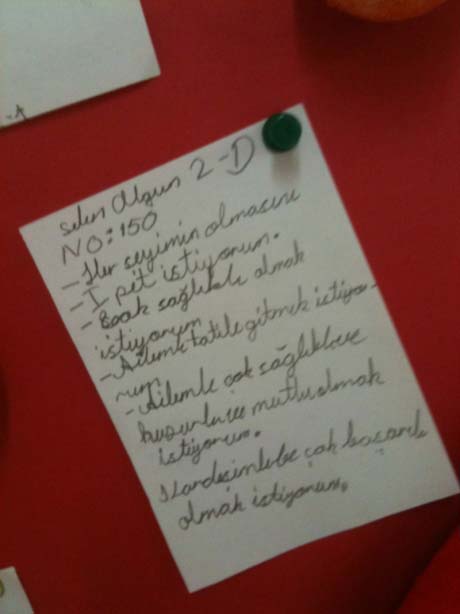 selin Olgun 2-D
NO:150
-Her şeyimin olmasını
-I pet istiyorum.
-çook sağlıklı olmak
istiyorum
-Ailemle tatile gitmek istiyo-
rum
-Ailemle çok sağlıklı ve
huzurlu ve mutlu olmak
istiyorum.
Kardeşimle çok başarılı
olmak istiyorum.
-A